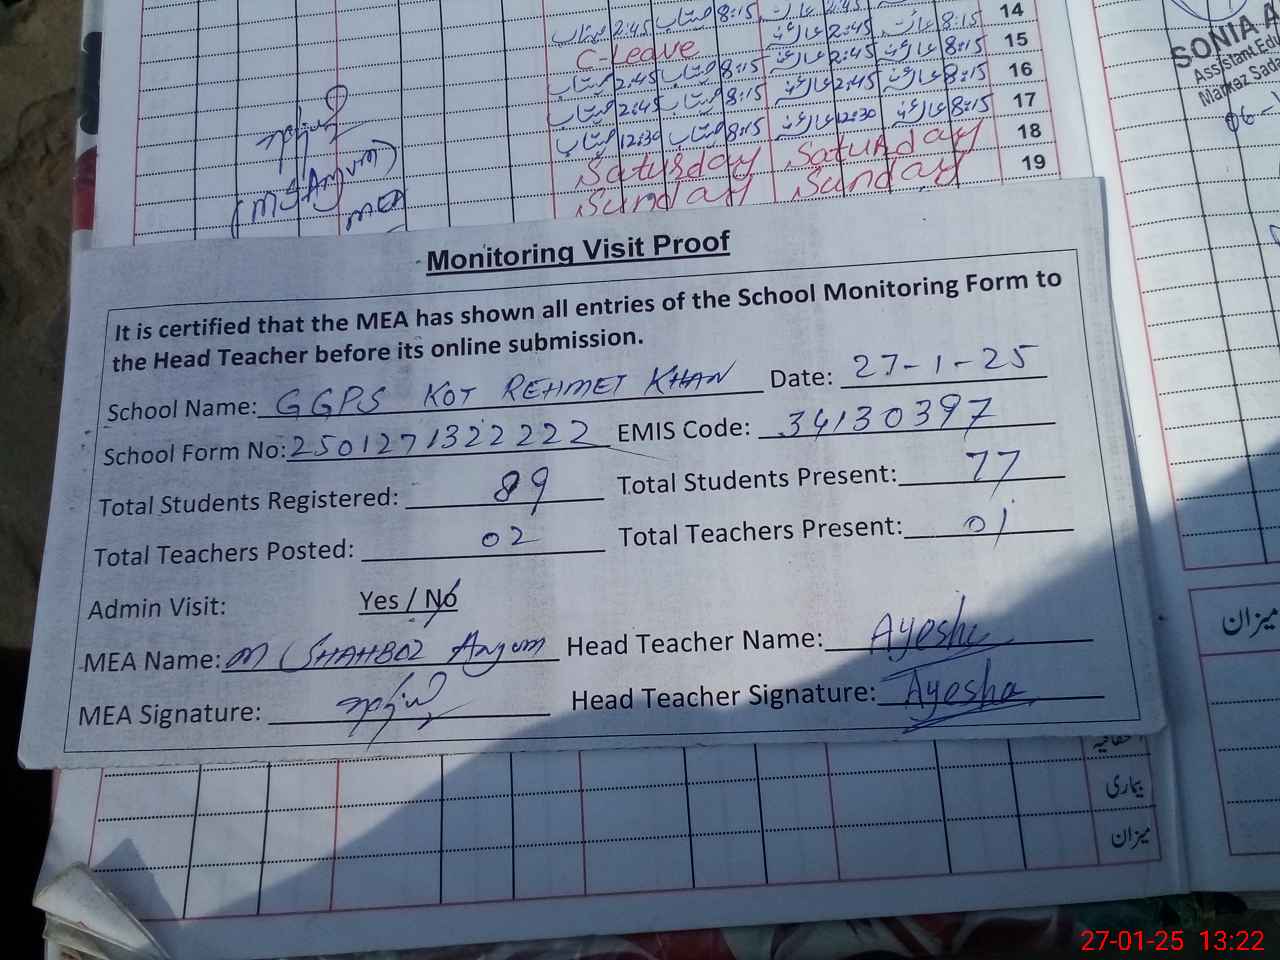 14
8:15 2:45 8:15 2:45
C-Leave 2:45 8:15 15
2:45 8:15 2:45 8:15 16
2:45 8:15 2:45 8:15 17
12:30 8:15 12:30 8:15 18
Saturday Saturday 19
Sunday Sunday
(M S Anjum)
MEA
SONIA A
Assistant Edu
Markaz Sada
06-
Monitoring Visit Proof
It is certified that the MEA has shown all entries of the School Monitoring Form to
the Head Teacher before its online submission.
School Name: GGPS KOT REHMET KHAN Date: 27-1-25
School Form No: 2501271322222 EMIS Code: 34130397
Total Students Registered: 89 Total Students Present: 77
Total Teachers Posted: 02 Total Teachers Present: 01
Admin Visit: Yes / No
MEA Name: M SHAHBAZ Anjum Head Teacher Name: Ayesha
MEA Signature: Head Teacher Signature: Ayesha
میزان
بیماری
میزان
27-01-25 13:22